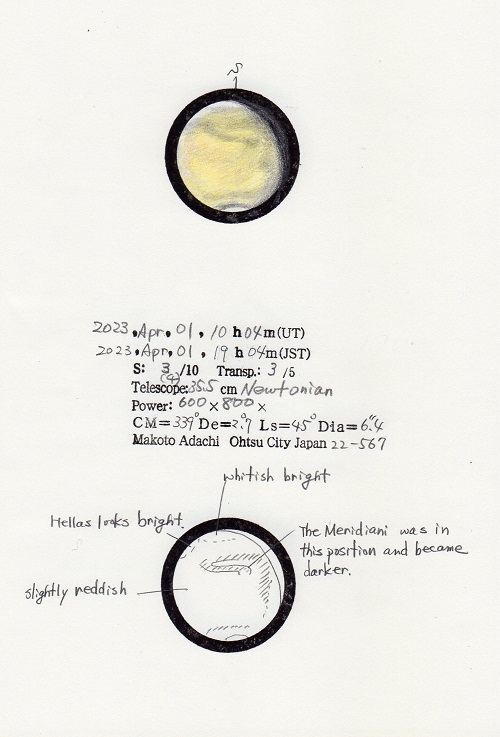 S
2023.Apr.01. 10 h 04m(UT)
2023.Apr.01. 19 h 04m(JST)
S: 3/10 Transp.: 3/5
(4)
Telescope:35.5 cm Newtonian
Power: 600×800×
CM=339°De=2.°7 Ls=45°Dia=6."4
Makoto Adachi Ohtsu City Japan 22-567
whitish bright
Hellas looks bright.
The Meridiani was in
this position and became
darker.
slightly reddish